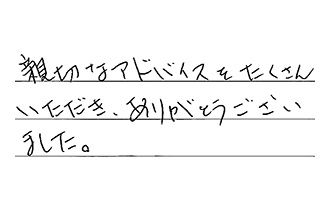 親切なアドバイスをたくさん
いただき、ありがとうござい
ました。